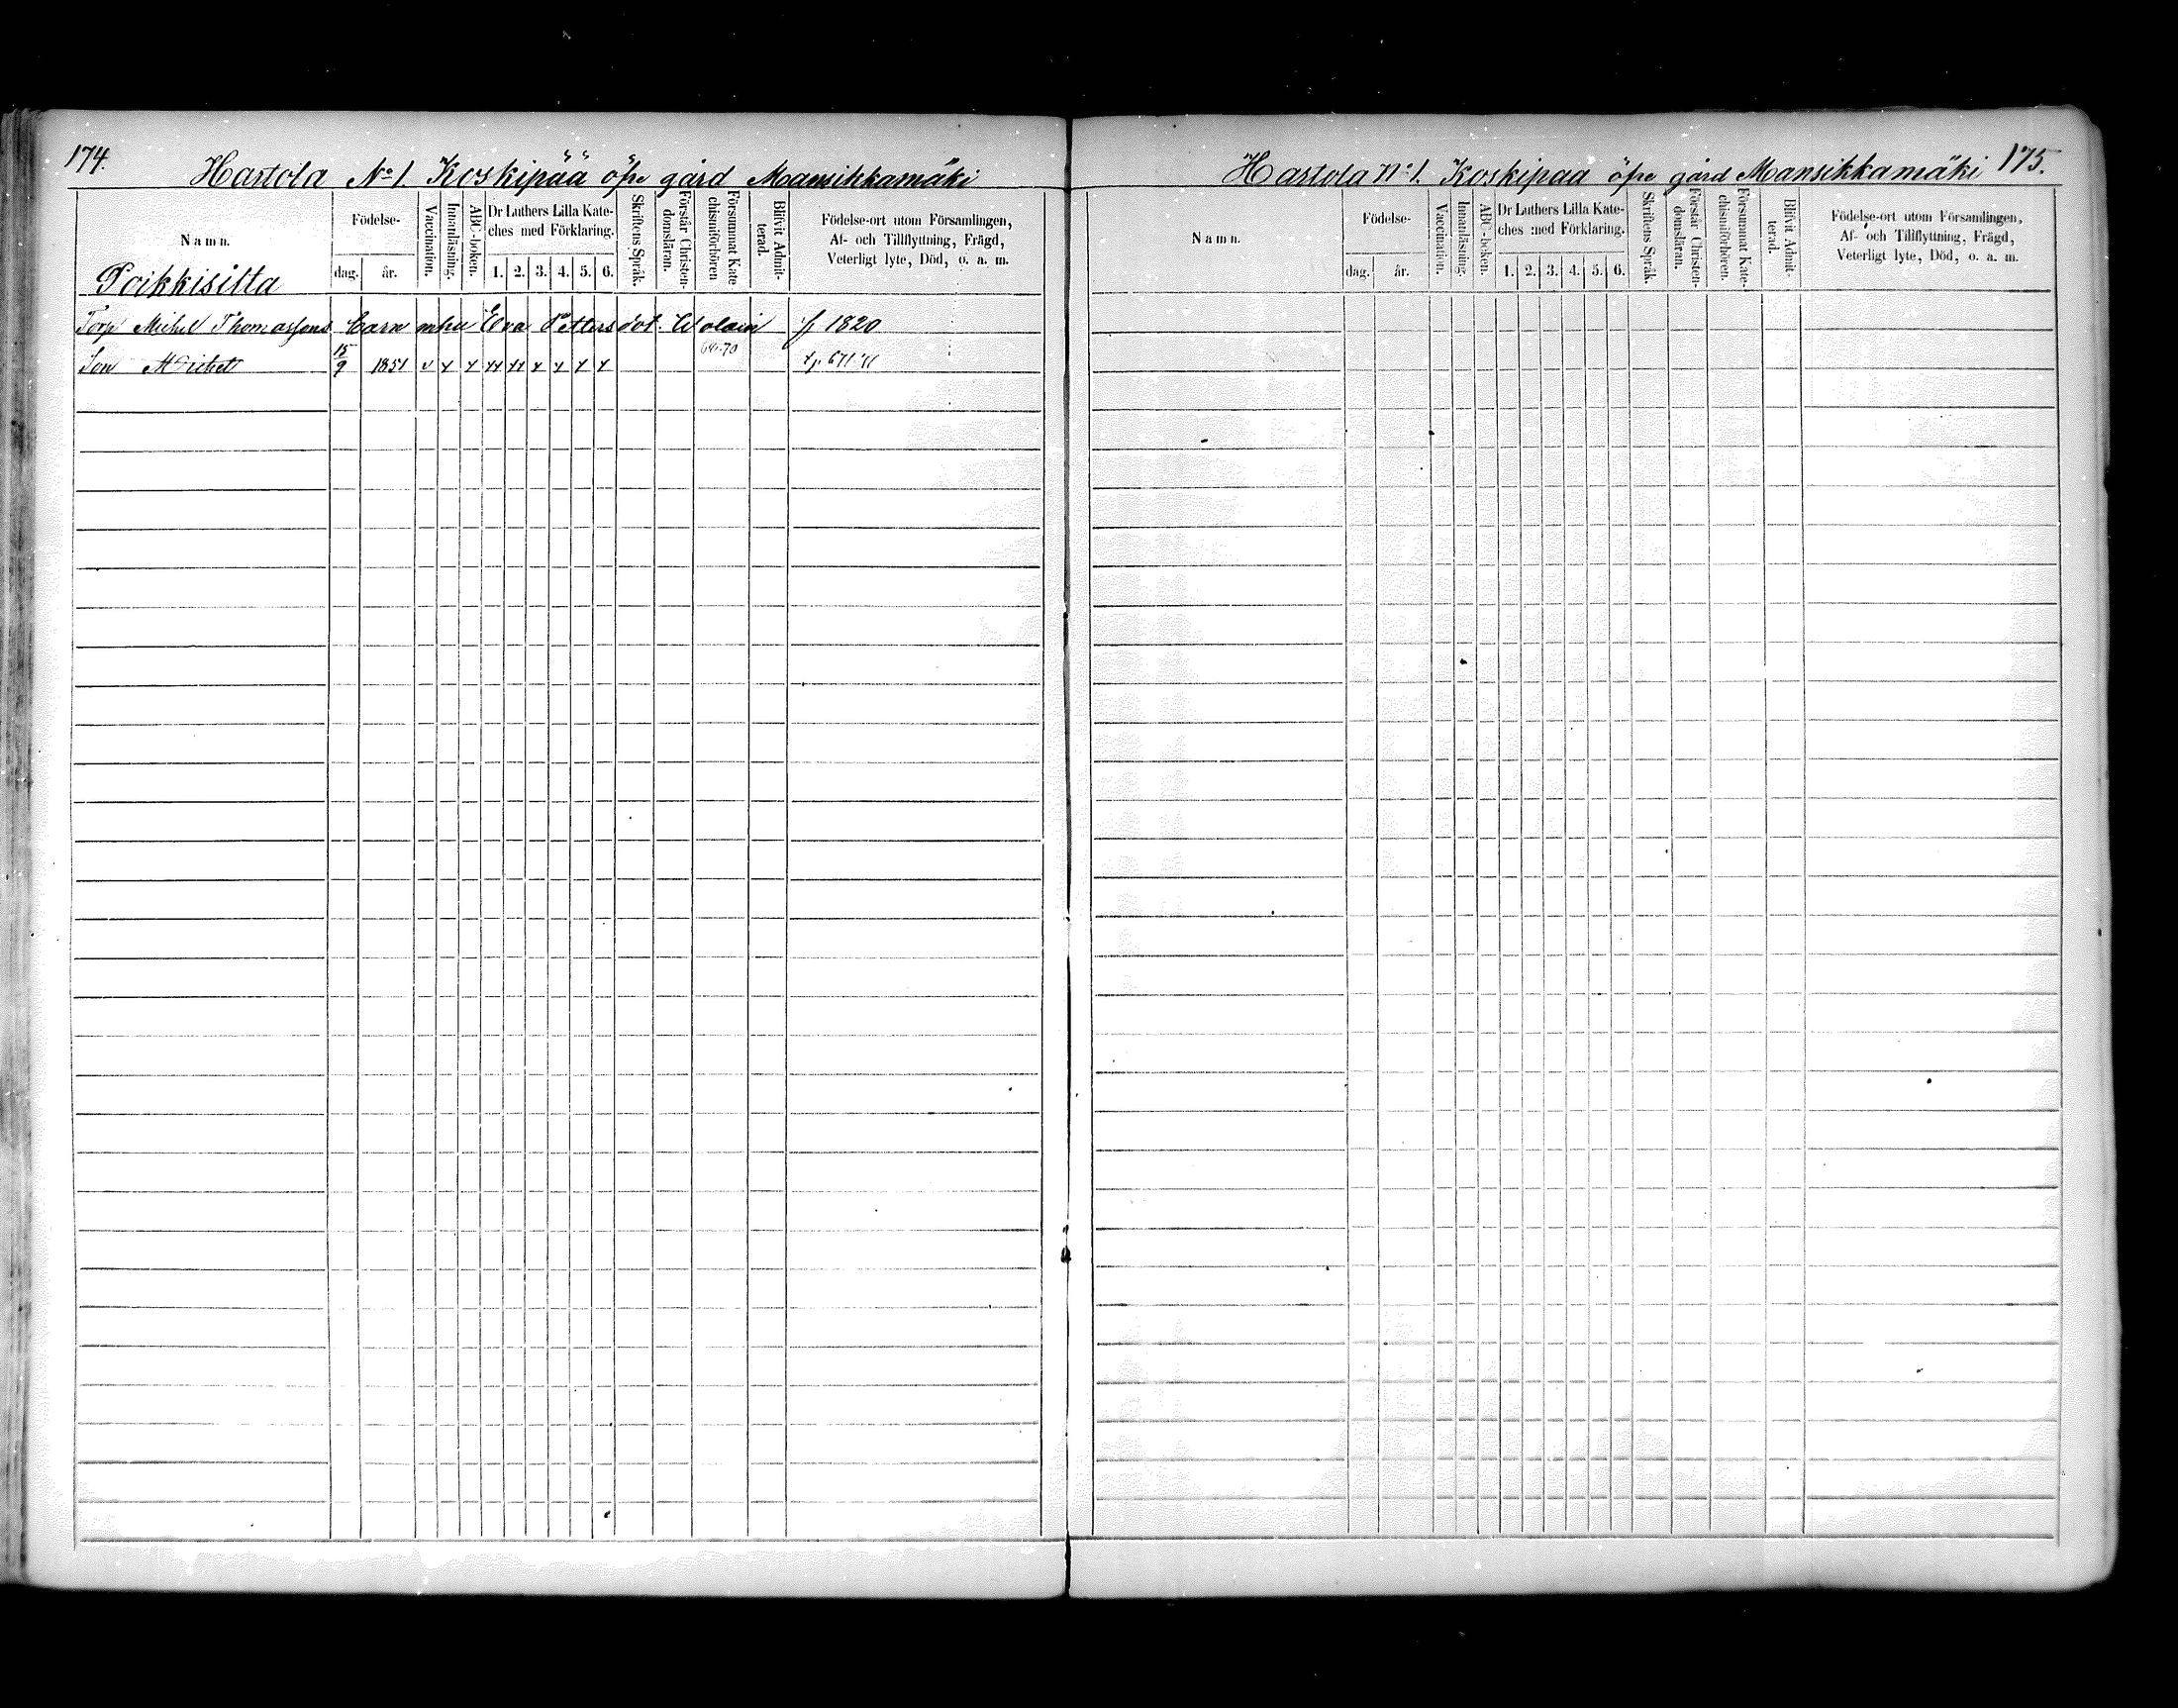 174.
Hartola No 1. Koskipää öfre gård Mansikkamäki
Namn.
Födelse-
dag. år.
Vaccination.
Innanläsning.
ABC-boken.
Dr Luthers Lilla Kate-
ches med Förklaring.
1. 2. 3. 4. 5. 6.
Skriftens Språk.
Förstår Christen-
domsläran.
Försummat Kate
chismiförhören
Blifvit Admit-
terad.
Födelse-ort utom Församlingen,
Af- och Tillflyttning, Frägd,
Veterligt lyte, Död, o. a. m.
Poikkisilta
Torp Michel Thomassons Barn m hu Eva Petters dot. f 1820
Son Michel 15/9 1851 v x x xx xx x x x x
Hartola No 1. Koskipaa öfre gård Mansikkamäki 175.
Namn.
Födelse-
dag. år.
Vaccination.
Innanläsning.
ABC-boken.
Dr Luthers Lilla Kate-
ches med Förklaring.
1. 2. 3. 4. 5. 6.
Skriftens Språk.
Förstår Christen-
domsläran.
Försummat Kate-
chismiförhören.
Blifvit Admit-
terad.
Födelse-ort utom Församlingen,
Af- och Tillflyttning, Frägd,
Veterligt lyte, Död, o. a. m.